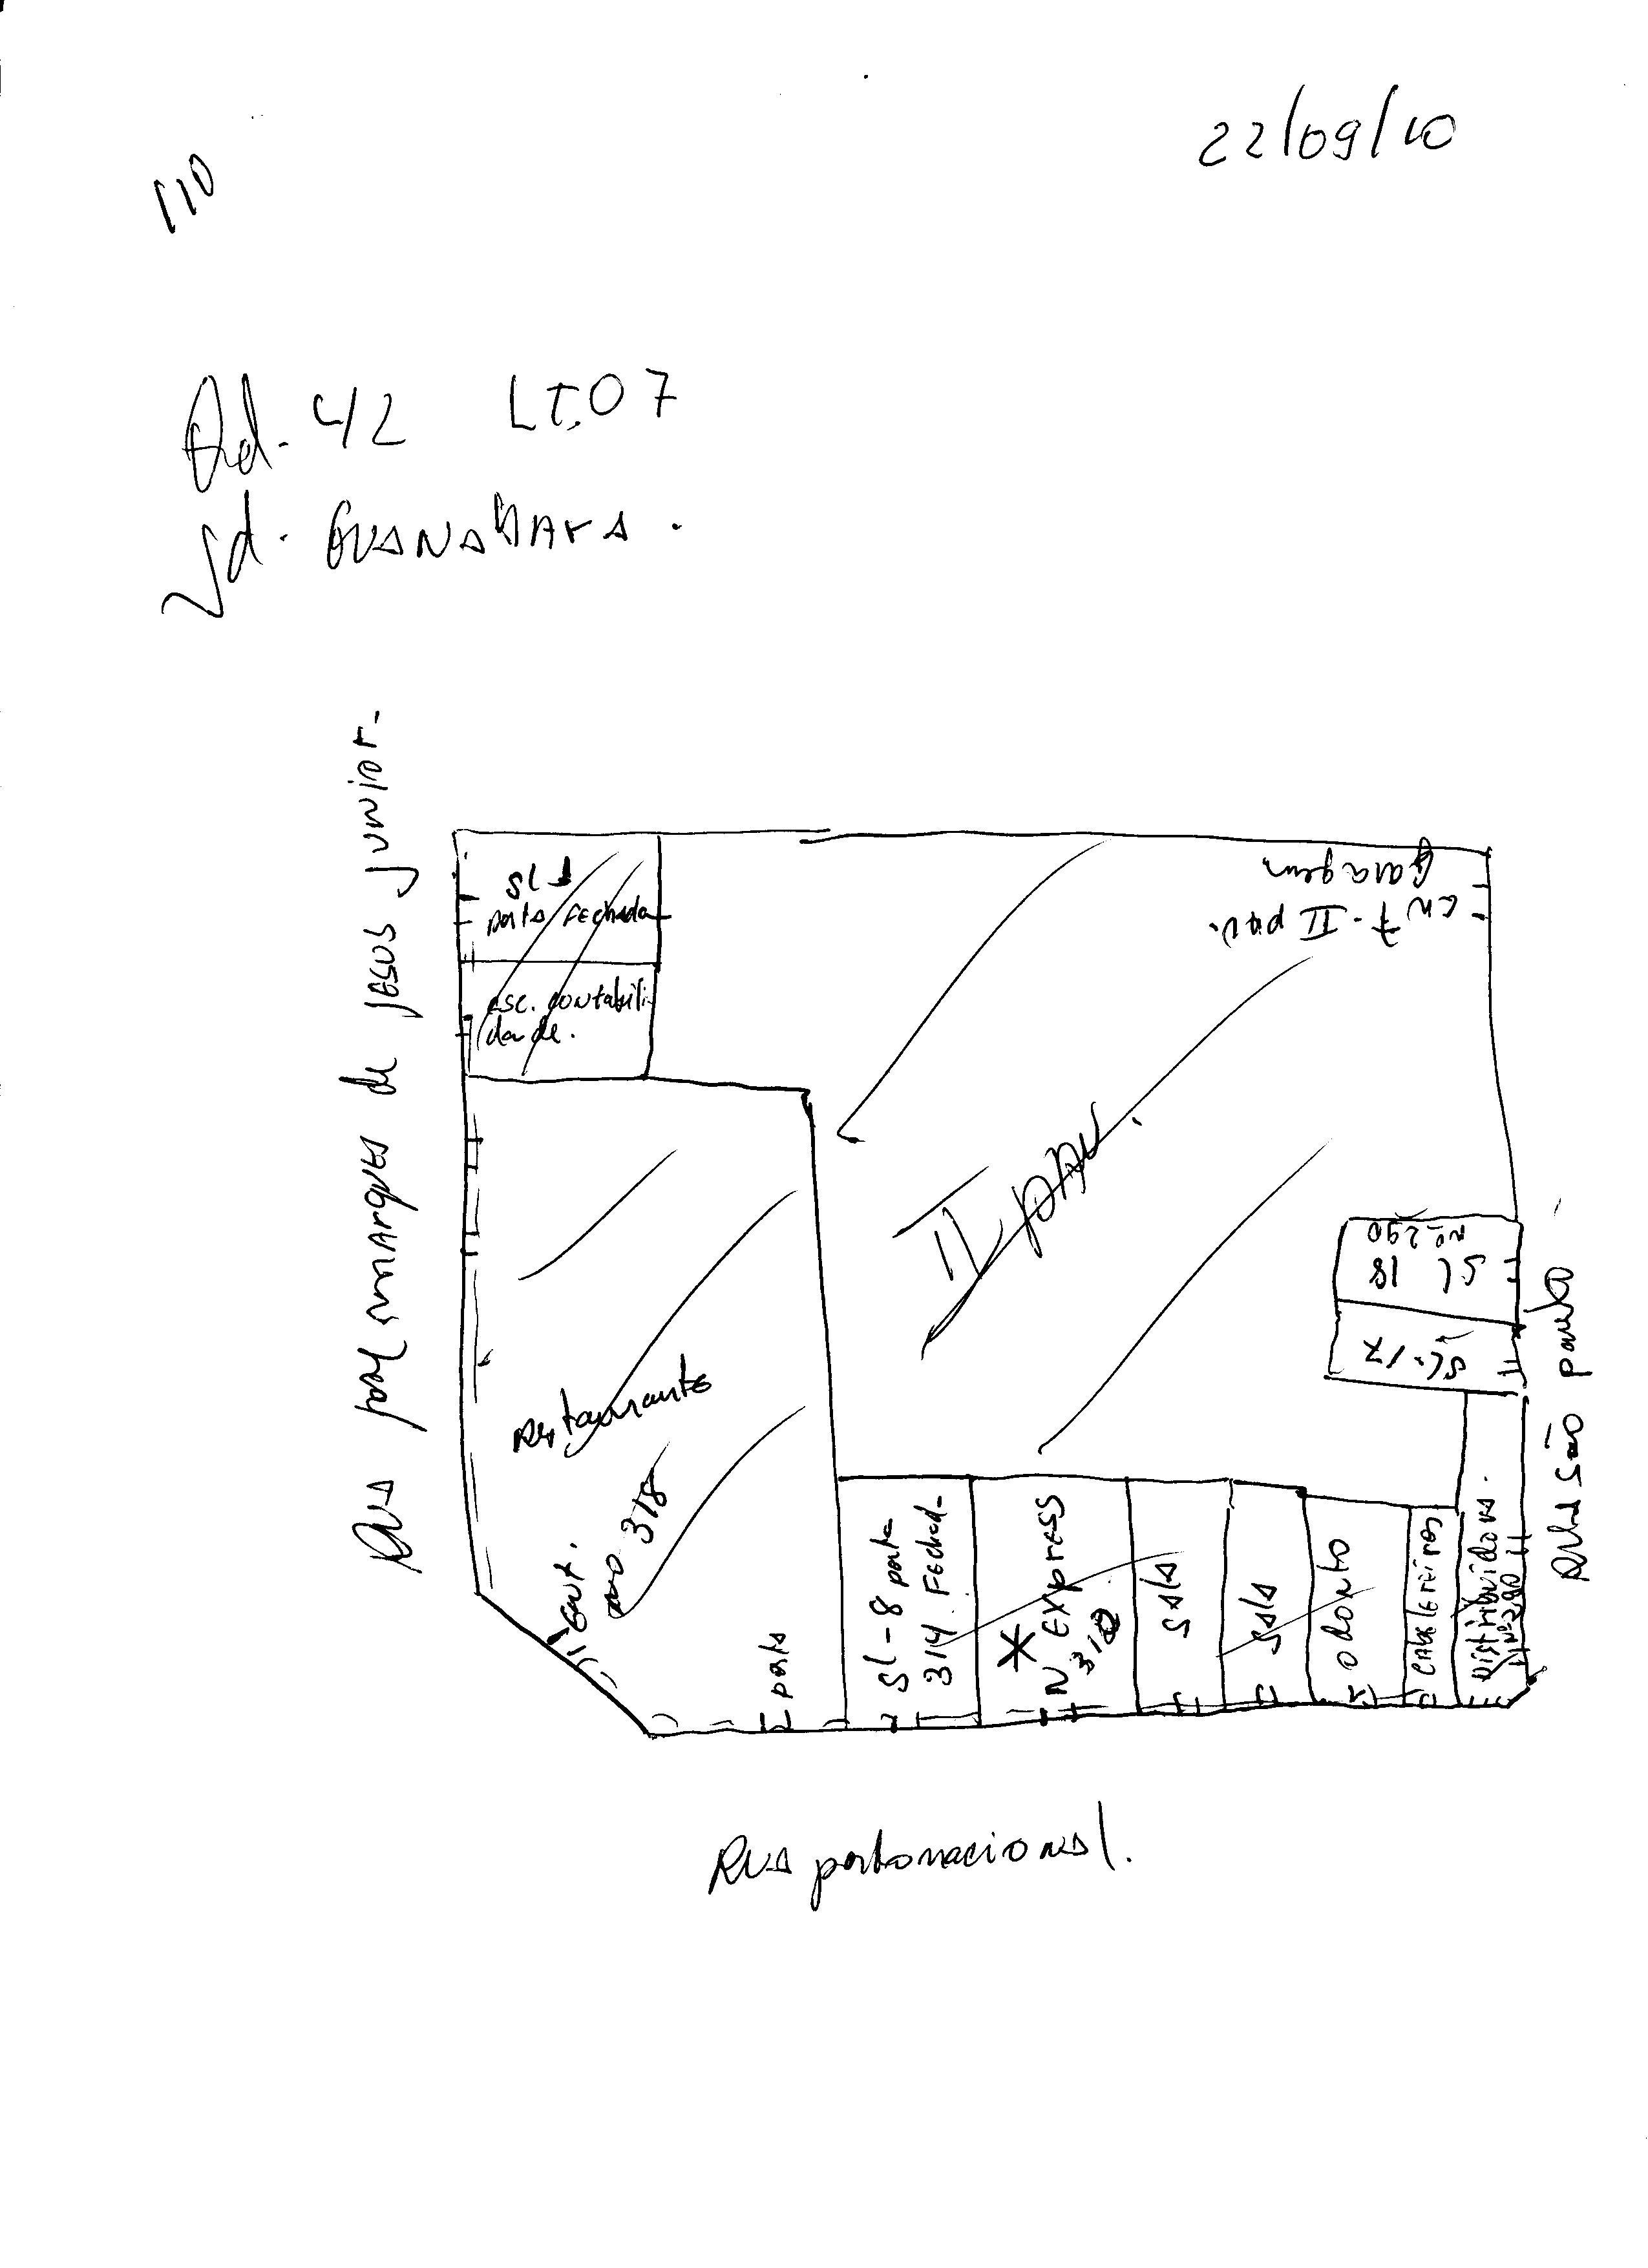 22/09/10
110
Qd. 42 LT.07
Jd. GUANABARA.
Rua prof marques de jesus junior.
SL 1
porta fechada
esc. contabili
dade.
Garagem
en 7 - II pav.
II pav.
SL 18
nº 290
SL. 17
Rua São paulo
Restaurante
nº 318
ent.
porta
SL-8 porta
314. Fechad
* N Express
310
sala
sala
odonto
Cabeleireiros
Distribuidoras.
nº 290
Rua portonacional.